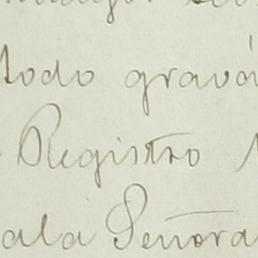 todo gravá
Registro
ala Señora